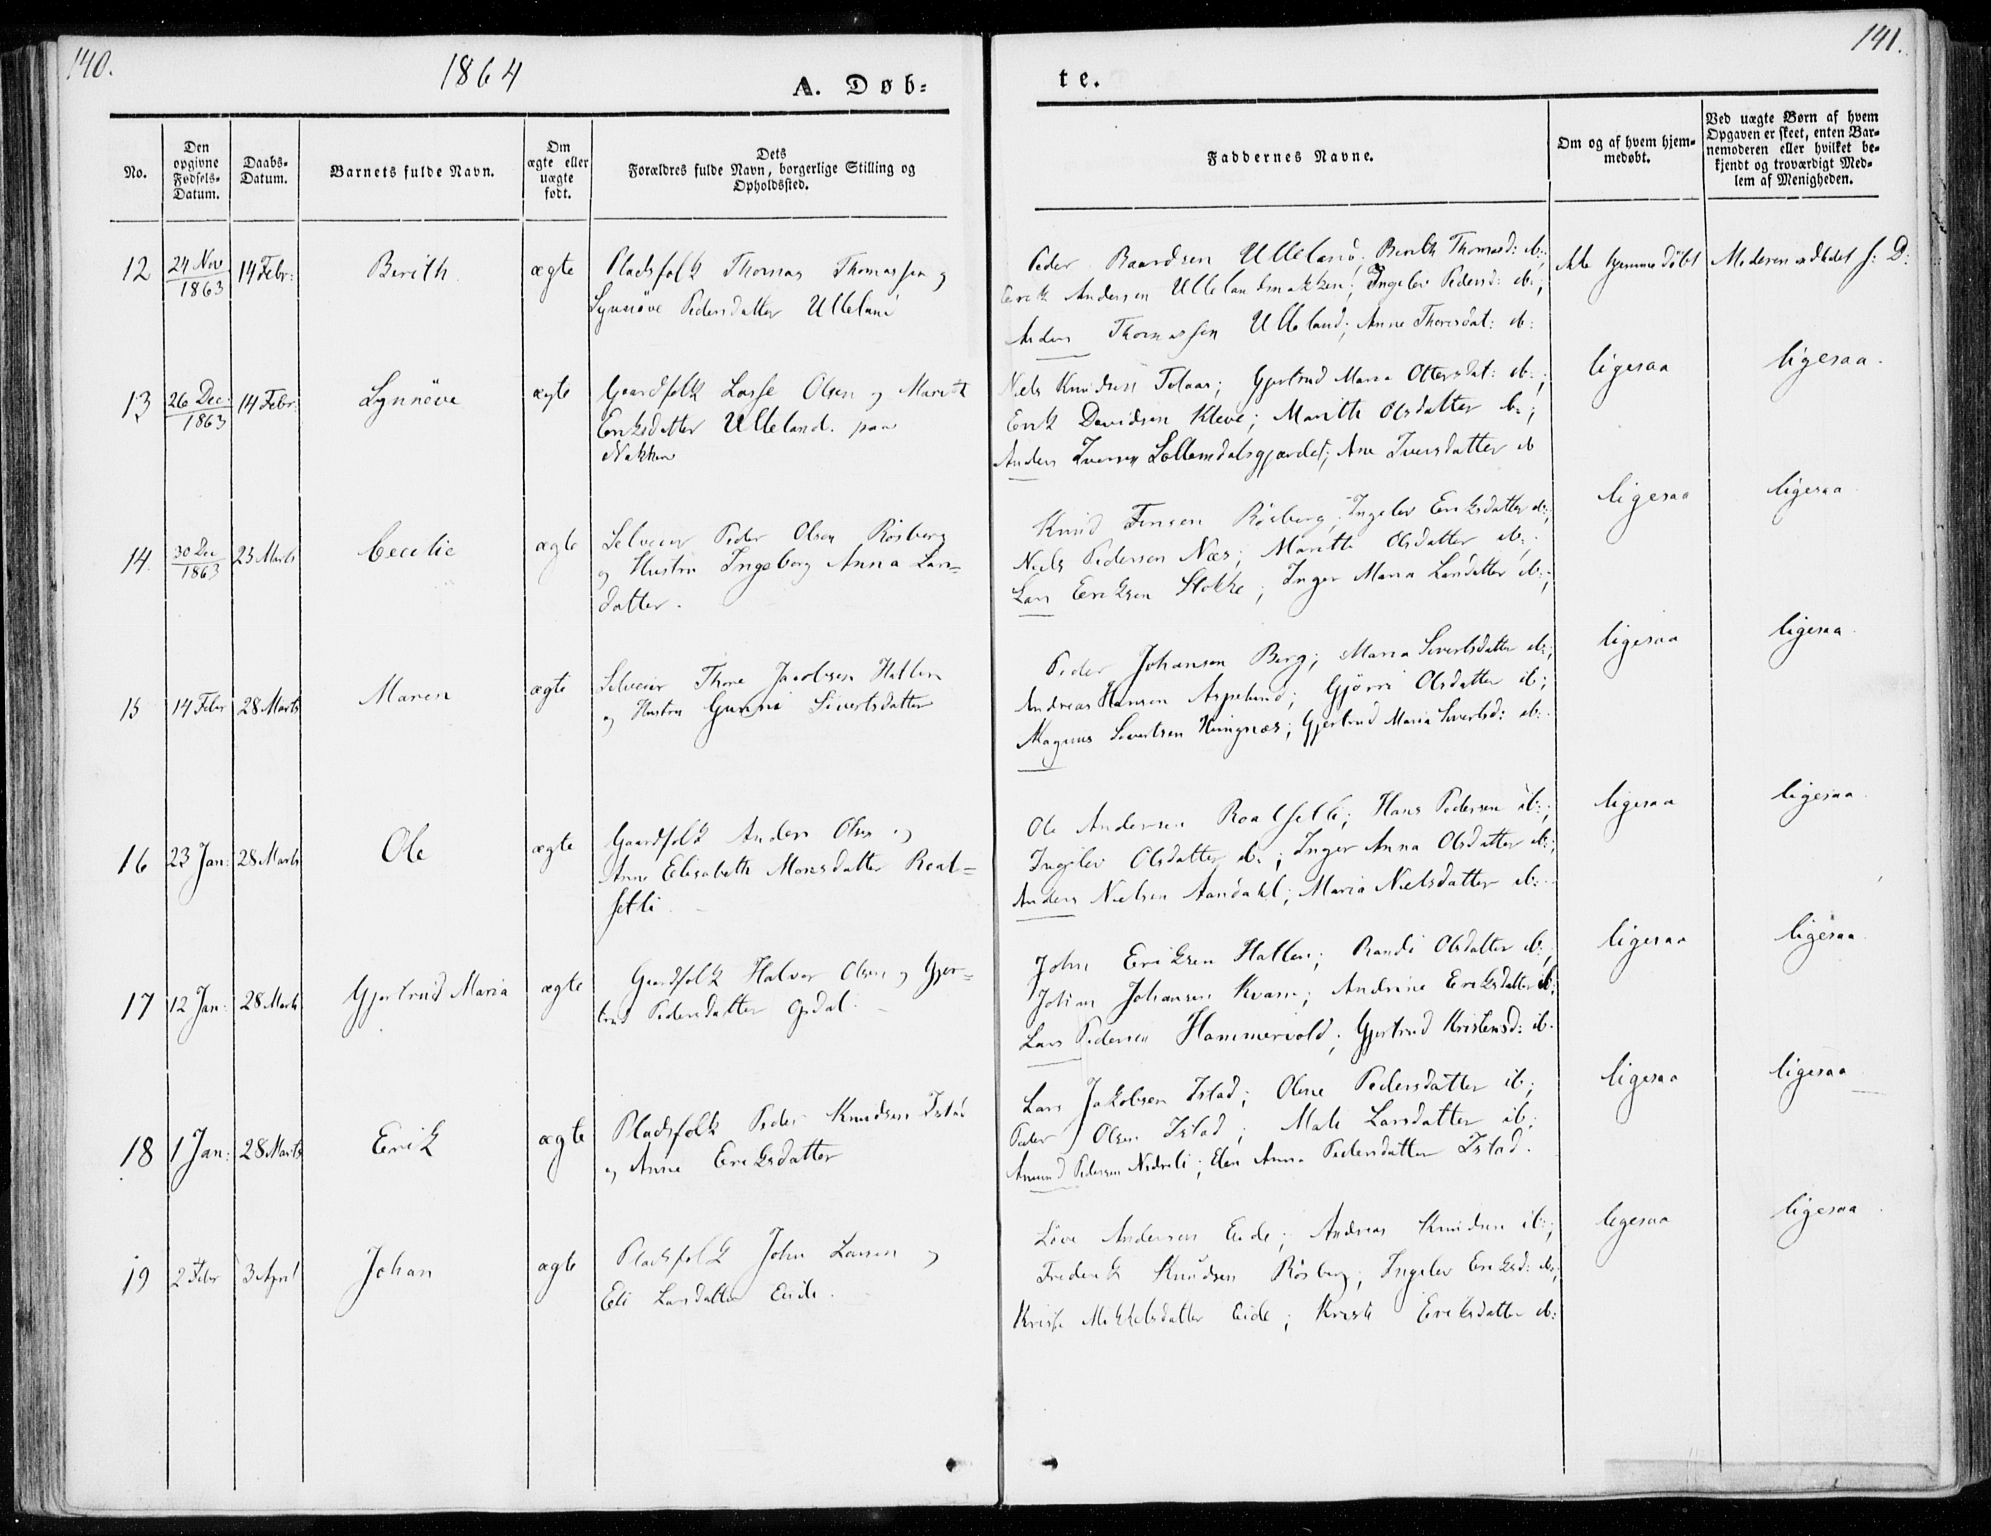 140.
1864
A. Døb=
te.
141.
No.
Den opgivne Fødsels-Datum.
Daabs-Datum.
Barnets fulde Navn.
Om ægte eller uægte født.
Dets Forældres fulde Navn, borgerlige Stilling og Opholdssted.
Faddernes Navne.
Om og af hvem hjemmedøbt.
Ved uægte Børn af hvem Opgaven er skeet, enten Barnemoderen eller hvilket bekjendt og troværdigt Medlem af Menigheden.
12 24 Nov 1863 14 Febr: Berith ægte Pladsfolk Thomas Thomassen og
Synnöve Pedersdatter Ulleland
Peder Baardsen Ulleland; Berith Thomasd: ib:;
Erik Andersen Ullelandsnakken; Ingelev Pedersd: ib:;
Anders Thomassen Ulleland; Anne Thoresdat: ib:
ikke hjemmedöbt
Moderen indledet s: D:
13 26 Dec: 1863 14 Febr: Synnöve ægte Gaardfolk Lasse Olsen og Marith
Eriksdatter Ulleland paa
Nakken
Niels Knudsen Talaas; Gjertrud Maria Ottersdat: ib:;
Erik Davidsen Kleve; Marith Olsdatter ib:;
Anders Iversen Sollemdalsgjærdet; Ane Iversdatter ib
ligesaa
ligesaa.
14. 30 Dec 1863 25 Marts Cecelie ægte Selveier Peder Olsen Rösberg
og Hustru Ingeborg Anna Lars=
datter.
Knud Jensen Rösberg; Ingelev Eriksdatter ib:;
Niels Pedersen Næs; Marith Olsdatter ib:;
Lars Eriksen Stokke; Inger Maria Larsdatter ib:;
ligesaa
ligesaa
15 14 Febr 28 Marts Maren ægte Selveier Thore Jacobsen Hatlen
og Hustru Gunni Sivertsdatter
Peder Johansen Berg; Maria Sivertsdatter ib:;
Andreas Hansen Aspelund; Gjörri Olsdatter ib;
Magnus Sivertsen Hungnæs; Gjertrud Maria Sivertsd: ib:
ligesaa
ligesaa.
16 23 Jan: 28 Marts Ole ægte Gaardfolk Anders Olsen og
Anne Elisabeth Monsdatter Roal=
setli
Ole Andersen Roalsetli; Hans Pedersen ib:;
Ingelev Olsdatter ib:; Inger Anna Olsdatter ib:;
Anders Nielsen Aandahl; Maria Nielsdatter ib:
ligesaa
ligesaa.
17 12 Jan: 28 Marts Gjertrud Maria ægte Gaardfolk Halvor Olsen og Gjer=
trud Pedersdatter Opdal.
John Eriksen Hatlen; Randi Olsdatter ib:;
Johan Johansen Kvam; Andrine Eriksdatter ib:
Lars Pedersen Hammervold; Gjertrud Kristensd: ib.
ligesaa
ligesaa
18 1 Jan: 28 Marts Erik ægte Pladsfolk Peder Knudsen Istad
og Anne Eriksdatter
Lars Jakobsen Istad; Olene Pedersdatter ib;
Peder Olsen Istad; Mali Larsdatter ib;
Amund Pedersen Nedreli; Elen Anna Pedersdatter Istad.
ligesaa
ligesaa
19 2 Febr 3 April Johan ægte Pladsfolk John Larsen og
Eli Larsdatter Eide.
Löve Andersen Eide; Andreas Knudsen ib:;
Frederik Knudsen Rösberg; Ingelev Eriksd: ib:;
Kristi Mikkelsdatter Eide; Kristi Eriksdatter ib:
ligesaa
ligesaa.